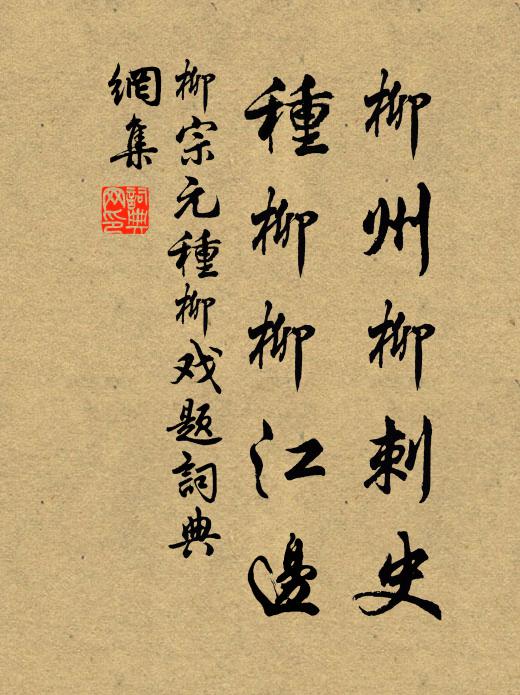 柳州柳刺史
種柳柳江邊
柳宗元種柳戏题詞典
網集
詞典網印